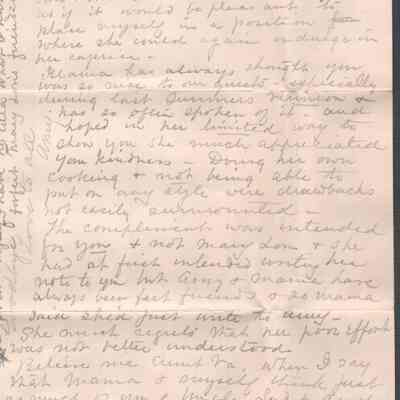 as if it would be pleasant to
place myself in a position
where she could again indulge in
her caprice -
Mama has always thought you
was so nice to our guests - especially
during last Summers reunion &
has so often spoken of it - and
hoped in her limited way to
show you she much appreciated
your kindness - Doing her own
cooking & not being able to
put on any style were drawbacks
not easily surmounted -
The complement was intended
for you & not Mary Lou & she
had at first intended writing her
note to you but Amy & Mama have
always been fast friends & so Mama
said she'd just write to Amy -
She much regrets that her poor effort
was not better understood
Believe me Aunt Va, when I say
that Mama & myself think just
as much of you & Uncle